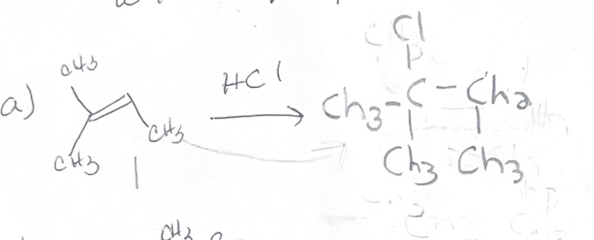 Cl
CH3
HCl
a)
CH3-C-CH2
CH3
CH3
CH3 CH3
CH3